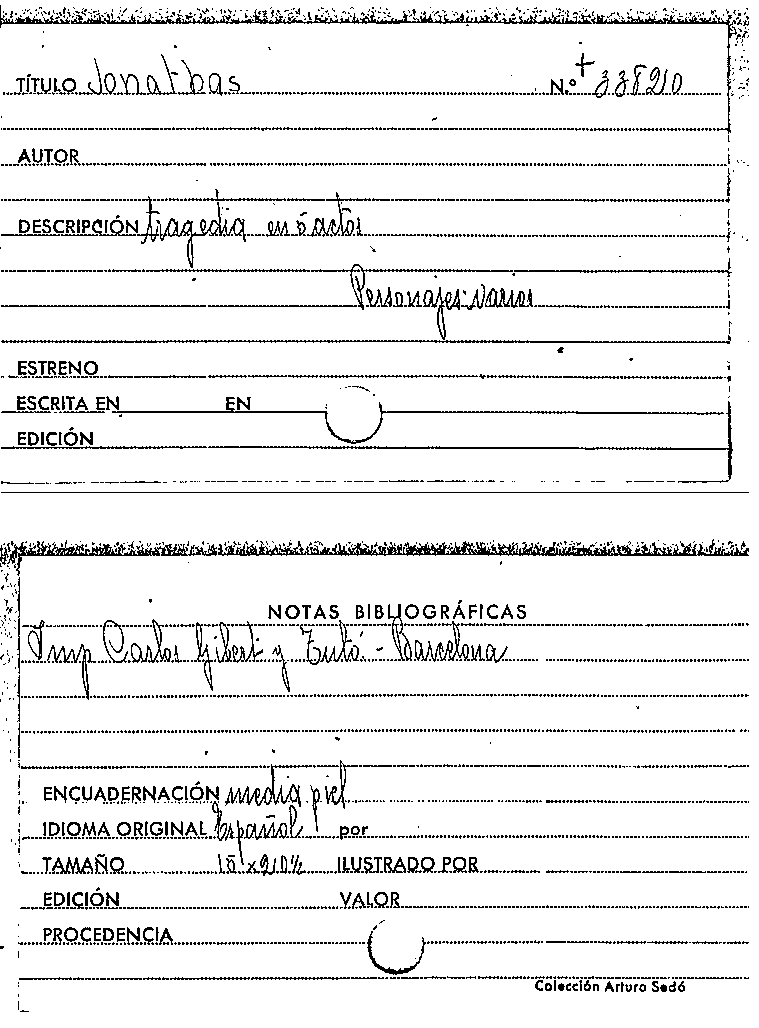 TÍTULO Jonathas N.º + 338210
AUTOR
DESCRIPCIÓN tragedia en 5 actos
Personajes: varios
ESTRENO
ESCRITA EN EN
EDICIÓN
NOTAS BIBLIOGRÁFICAS
Imp Carlos Gibert y Tutó - Barcelona
ENCUADERNACIÓN media piel
IDIOMA ORIGINAL Español por
TAMAÑO ILUSTRADO POR
EDICIÓN VALOR
PROCEDENCIA
Colección Arturo Sedó